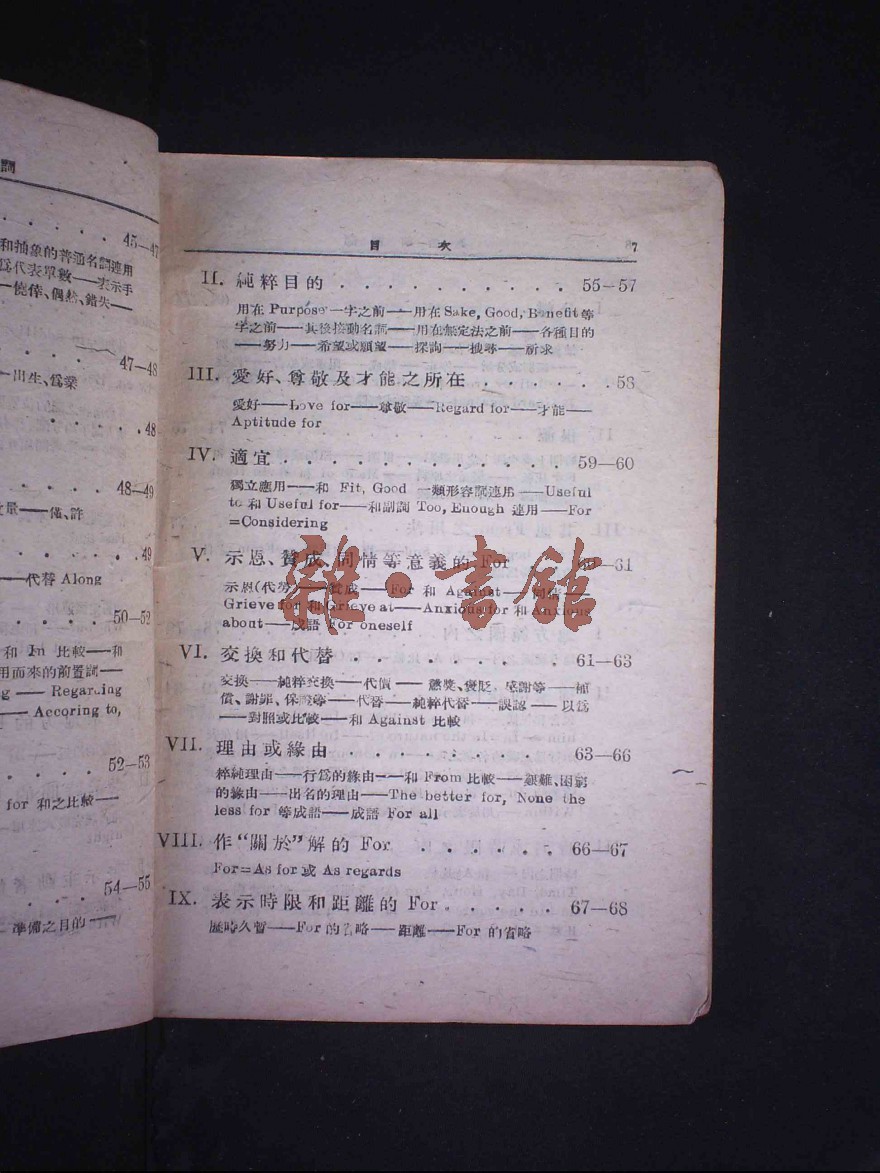 詞
45—47
和抽象的普通名詞連用
爲代表單數——表示手
—僥倖、偶然、錯失—
47—48
—出生、爲業
48
48—49
量——僅、許
49
——代替 Along
50—52
和 In 比較——和
用而來的前置詞——
—— Regarding
—— Accoring to,
52—53
for 和之比較——
54—55
準備之目的——
目 次 7
II. 純粹目的 . . . . . . . . . . . 55—57
用在 Purpose 一字之前——用在 Sake, Good, Benefit 等
字之前——其後接動名詞——用在無定法之前——各種目的
——努力——希望或願望——探詢——搜尋——祈求
III. 愛好、尊敬及才能之所在 . . . . . . . 58
愛好——Love for——尊敬——Regard for——才能——
Aptitude for
IV. 適宜 . . . . . . . . . . . . . 59—60
獨立應用——和 Fit, Good 一類形容詞連用——Useful
to 和 Useful for——和副詞 Too, Enough 連用——For
=Considering
V. 示恩、贊成、同情等意義的 For 60—61
雜·書館
示恩(代勞)——贊成——For 和 Against——同情——
Grieve for 和 Grieve at——Anxious for 和 Anxious
about——成語 For oneself
VI. 交換和代替 . . . . . . . . . . 61—63
交換——純粹交換——代價——懲獎、褒貶、感謝等——補
償、謝罪、保證等——代替——純粹代替——誤認——以爲
——對照或比較——和 Against 比較
VII. 理由或緣由 . . . . . . . . . 63—66
粹純理由——行爲的緣由——和 From 比較——艱難、困窮
的緣由——出名的理由——The better for, None the
less for 等成語——成語 For all
VIII. 作“關於”解的 For . . . . . . 66—67
For=As for 或 As regards
IX. 表示時限和距離的 For . . . . . . 67—68
歷時久暫——For 的省略——距離——For 的省略